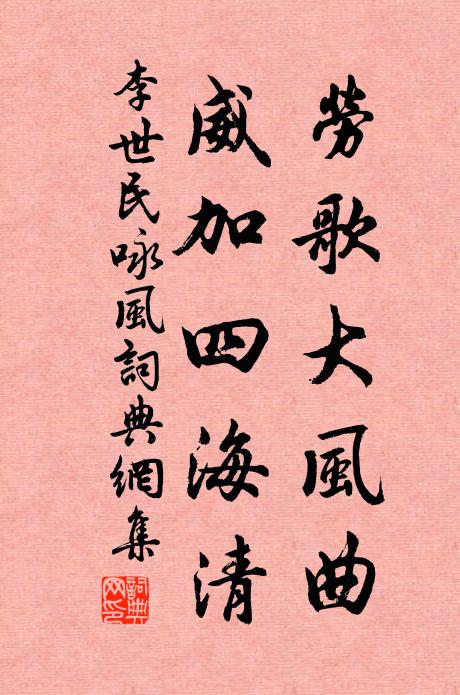 勞歌大風曲
威加四海清
李世民咏風詞典網集
詞典
网印